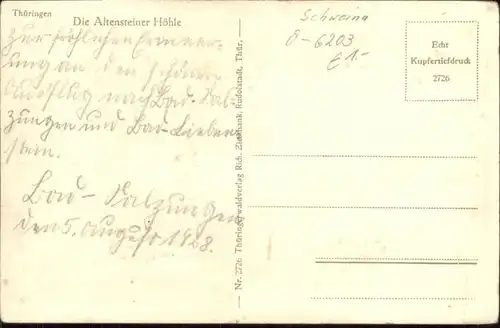 Thüringen
Die Altensteiner Höhle
Zur fröhlichen Erinner-
ung an den schönen
Ausflug nach Bad-Sal-
zungen und Bad-Lieben
stein.
Bad-Salzungen
den 5. August 1928.
Nr. 2726 Thüringerwaldverlag Rich. Zieschank, Rudolstadt, Thür.
Schweina
O-6203
€1.-
Echt
Kupfertiefdruck
2726